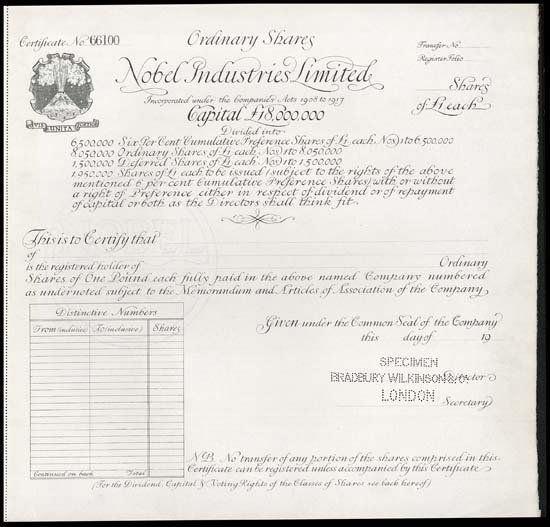 Certificate No. 66100
Ordinary Shares
Transfer No.
Register Folio
Nobel Industries Limited
Shares
of £1 each
Incorporated under the Companies Acts 1908 to 1917
Capital £18,000,000
Divided into
6,500,000 Six Per Cent Cumulative Preference Shares of £1 each Nos 1 to 6,500,000
8,050,000 Ordinary Shares of £1 each Nos 1 to 8,050,000
1,500,000 Deferred Shares of £1 each Nos 1 to 1,500,000
1,950,000 Shares of £1 each to be issued (subject to the rights of the above
mentioned 6 per cent Cumulative Preference Shares) with or without
a right of Preference either in respect of dividend or of repayment
of capital or both as the Directors shall think fit.
VIS UNITA FORTIOR
This is to Certify that
of
is the registered holder of Ordinary
Shares of One Pound each fully paid in the above named Company numbered
as undernoted subject to the Memorandum and Articles of Association of the Company
Distinctive Numbers
From (inclusive) To (inclusive) Shares
Continued on back Total
Given under the Common Seal of the Company
this day of 19
SPECIMEN
BRADBURY WILKINSON & Co
Director
LONDON
Secretary
N.B. No transfer of any portion of the shares comprised in this
Certificate can be registered unless accompanied by this Certificate
(For the Dividend, Capital & Voting Rights of the Classes of Shares see back hereof)